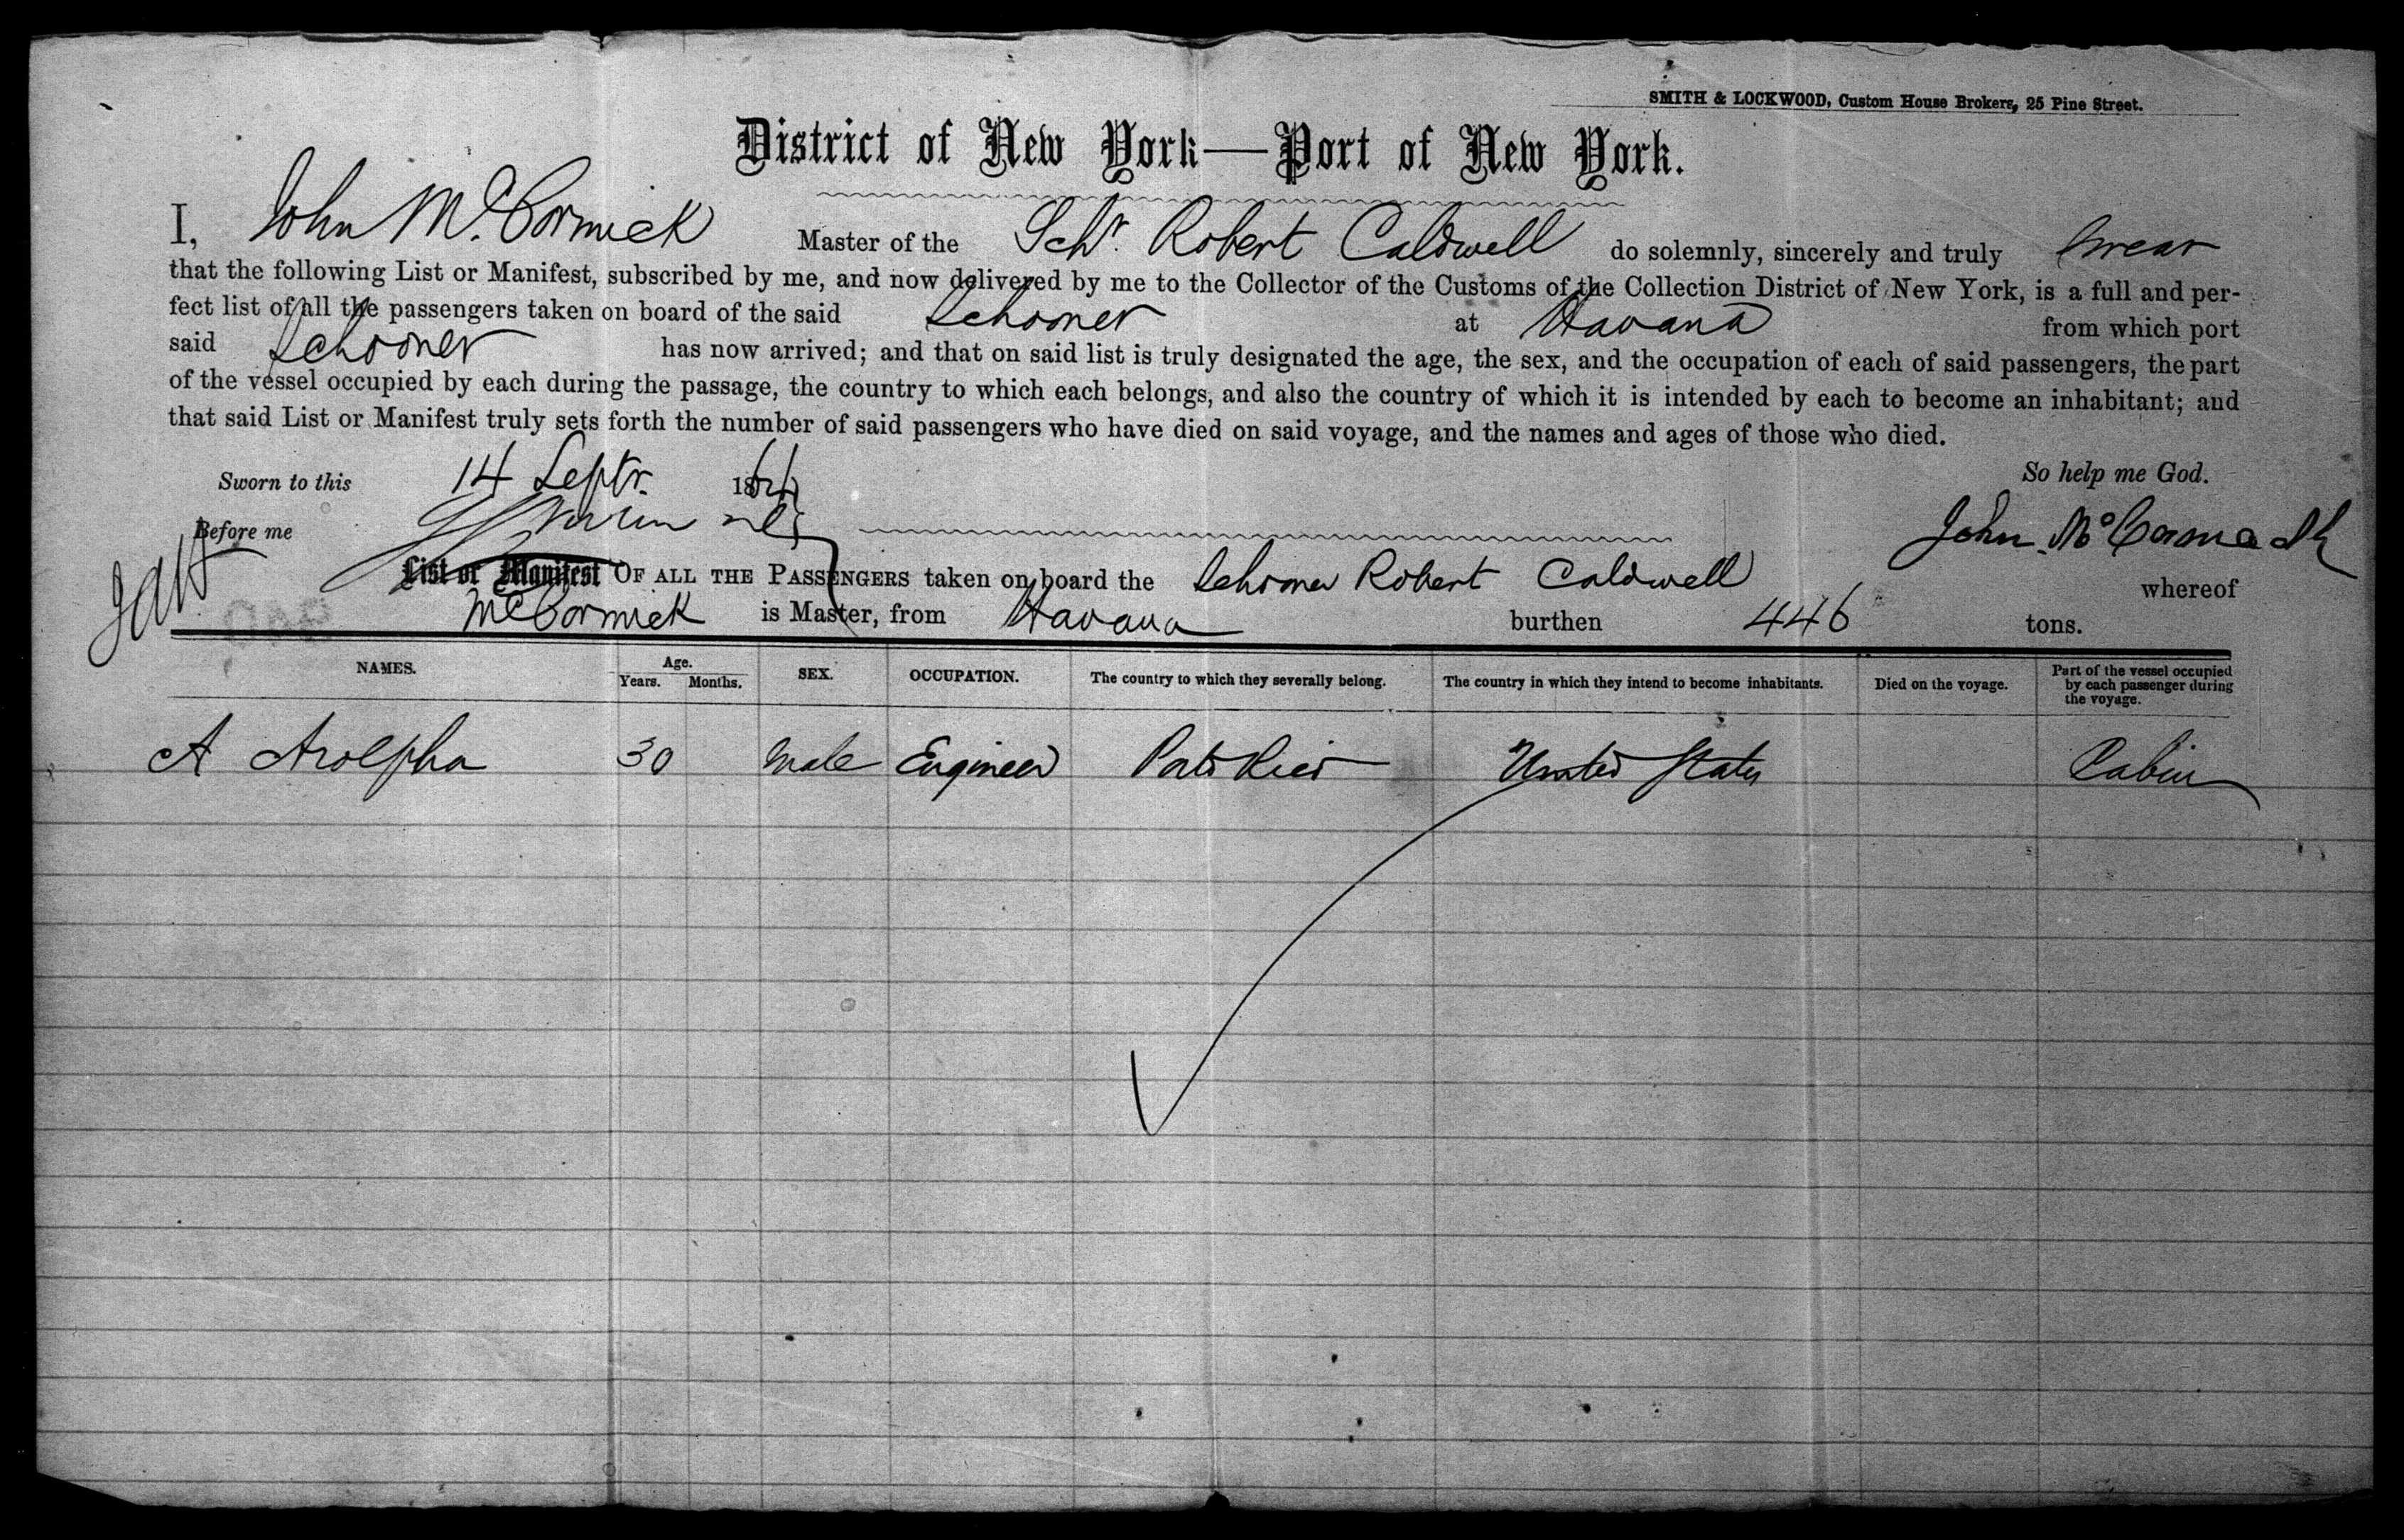 SMITH & LOCKWOOD, Custom House Brokers, 25 Pine Street.
District of New York—Port of New York.
I, John McCormick Master of the Schr. Robert Caldwell do solemnly, sincerely and truly swear
that the following List or Manifest, subscribed by me, and now delivered by me to the Collector of the Customs of the Collection District of New York, is a full and per-
fect list of all the passengers taken on board of the said Schooner at Havana from which port
said Schooner has now arrived; and that on said list is truly designated the age, the sex, and the occupation of each of said passengers, the part
of the vessel occupied by each during the passage, the country to which each belongs, and also the country of which it is intended by each to become an inhabitant; and
that said List or Manifest truly sets forth the number of said passengers who have died on said voyage, and the names and ages of those who died.
So help me God.
Sworn to this 14 Septr. 186
Before me
John McCormack
List or Manifest OF ALL THE PASSENGERS taken on board the Schooner Robert Caldwell whereof
McCormick is Master, from Havana burthen 446 tons.
NAMES. Age. Years. Months. SEX. OCCUPATION. The country to which they severally belong. The country in which they intend to become inhabitants. Died on the voyage. Part of the vessel occupied by each passenger during the voyage.
A 30 Male Engineer Porto Rico United States Cabin